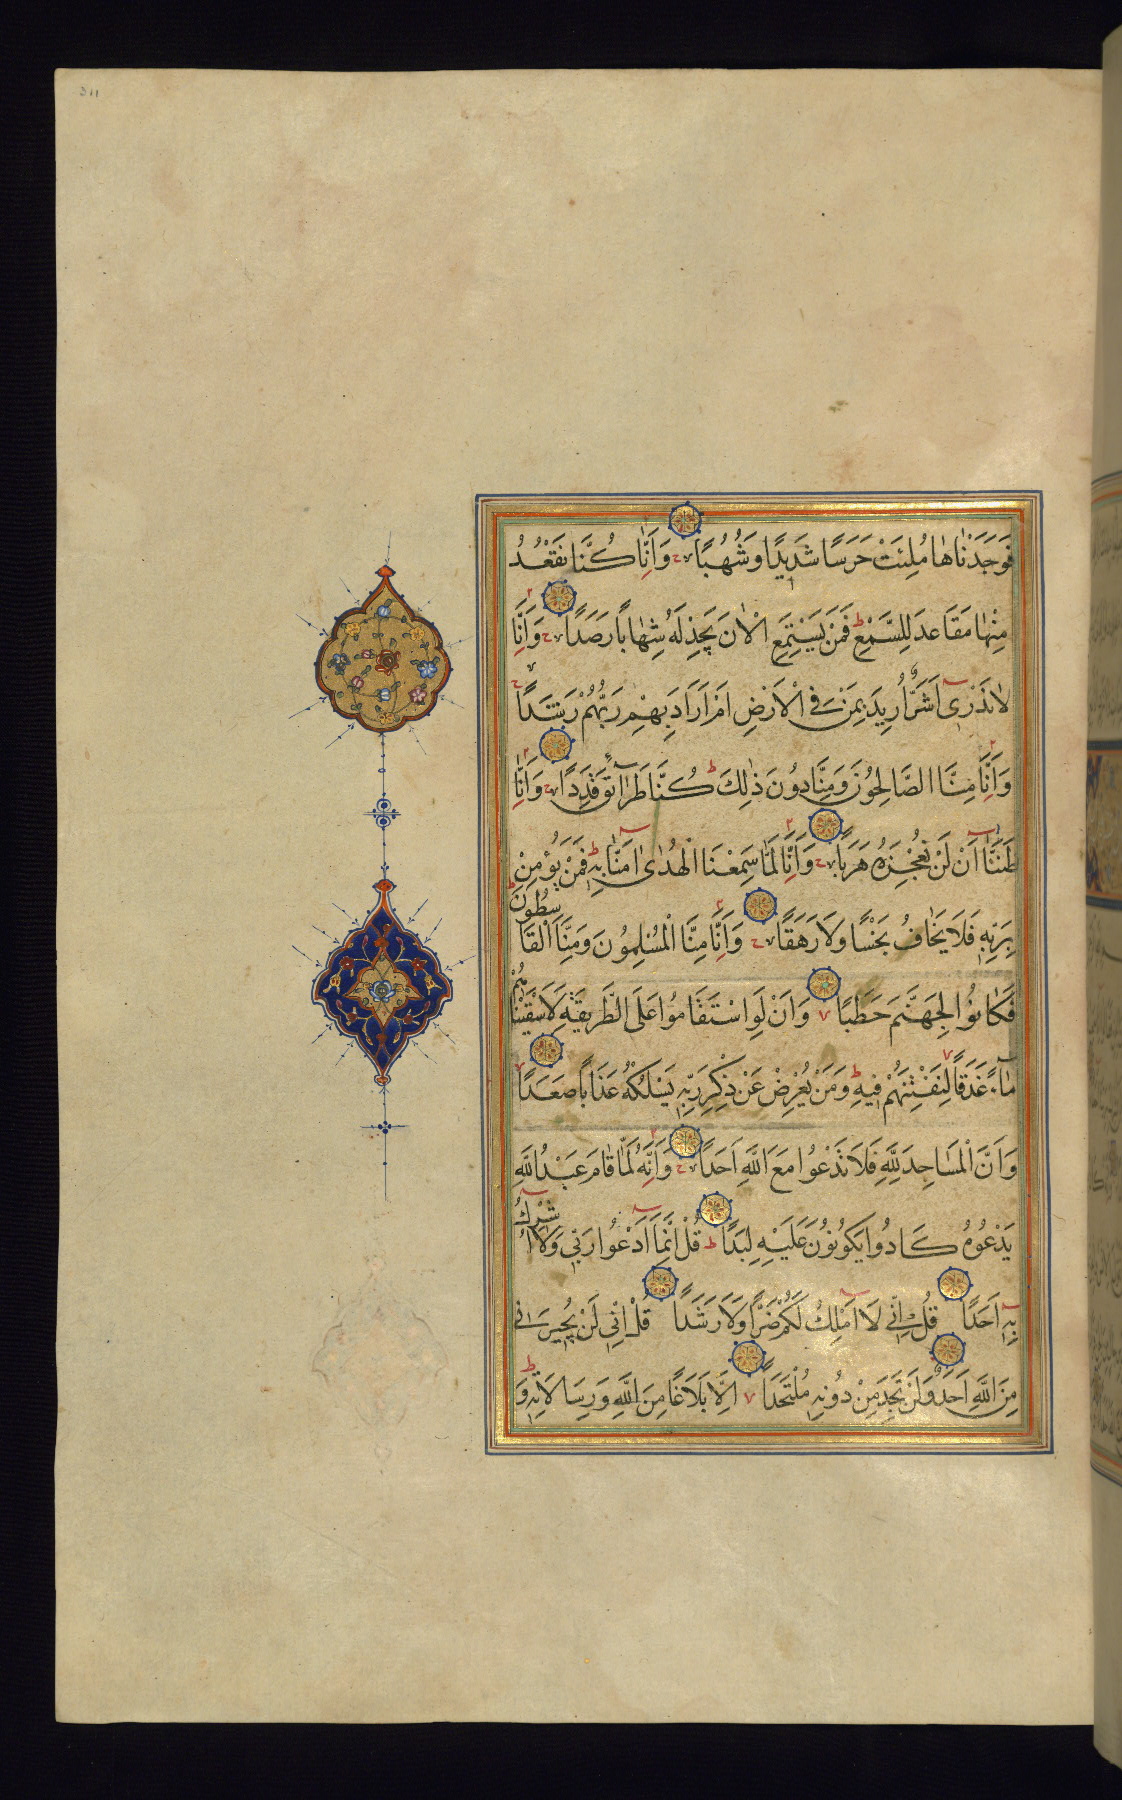 311
فَوَجَدْنَاهَا مُلِئَتْ حَرَسًا شَدِيدًا وَشُهُبًا وَاَنَّا كُنَّا نَقْعُدُ
مِنْهَا مَقَاعِدَ لِلسَّمْعِ فَمَنْ يَسْتَمِعِ الْاٰنَ يَجِدْ لَهُ شِهَابًا رَصَدًا وَاَنَّا
لَا نَدْرِى اَشَرٌّ اُرِيدَ بِمَنْ فِى الْاَرْضِ اَمْ اَرَادَ بِهِمْ رَبُّهُمْ رَشَدًا
وَاَنَّا مِنَّا الصَّالِحُونَ وَمِنَّا دُونَ ذٰلِكَ كُنَّا طَرَائِقَ قِدَدًا وَاَنَّا
ظَنَنَّا اَنْ لَنْ نُعْجِزَهُ هَرَبًا وَاَنَّا لَمَّا سَمِعْنَا الْهُدٰى اٰمَنَّا بِهِ فَمَنْ يُؤْمِنْ
بِرَبِّهِ فَلَا يَخَافُ بَخْسًا وَلَا رَهَقًا وَاَنَّا مِنَّا الْمُسْلِمُونَ وَمِنَّا الْقَاسِطُونَ
فَكَانُوا لِجَهَنَّمَ حَطَبًا وَاَنْ لَوِ اسْتَقَامُوا عَلَى الطَّرِيقَةِ لَاَسْقَيْنَاهُمْ
مَاءً غَدَقًا لِنَفْتِنَهُمْ فِيهِ وَمَنْ يُعْرِضْ عَنْ ذِكْرِ رَبِّهِ يَسْلُكْهُ عَذَابًا صَعَدًا
وَاَنَّ الْمَسَاجِدَ لِلّٰهِ فَلَا تَدْعُوا مَعَ اللّٰهِ اَحَدًا وَاَنَّهُ لَمَّا قَامَ عَبْدُ اللّٰهِ
يَدْعُوهُ كَادُوا يَكُونُونَ عَلَيْهِ لِبَدًا قُلْ اِنَّمَا اَدْعُوا رَبِّى وَلَا اُشْرِكُ
بِهِ اَحَدًا قُلْ اِنِّى لَا اَمْلِكُ لَكُمْ ضَرًّا وَلَا رَشَدًا قُلْ اِنِّى لَنْ يُجِيرَنِى
مِنَ اللّٰهِ اَحَدٌ وَلَنْ اَجِدَ مِنْ دُونِهِ مُلْتَحَدًا اِلَّا بَلَاغًا مِنَ اللّٰهِ وَرِسَالَاتِهِ وَ